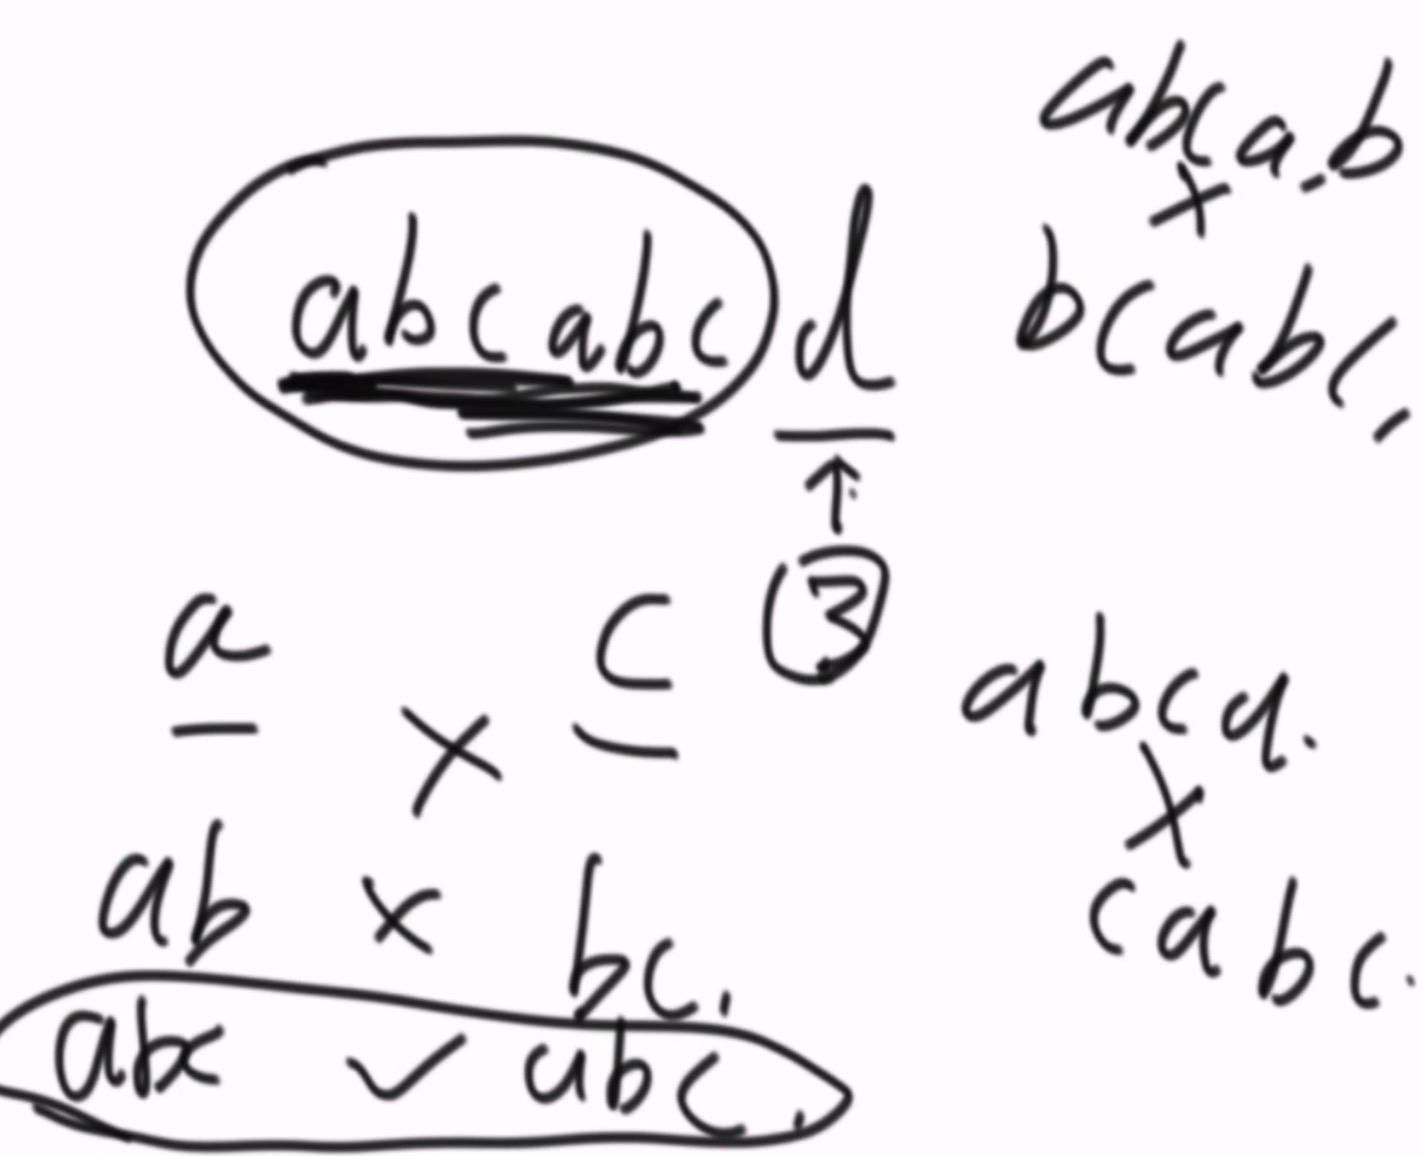 abcabcd
③
a × c
ab × bc,
abc ✓ abc,
abca.b
×
bcabc,
abca.
×
cabc.